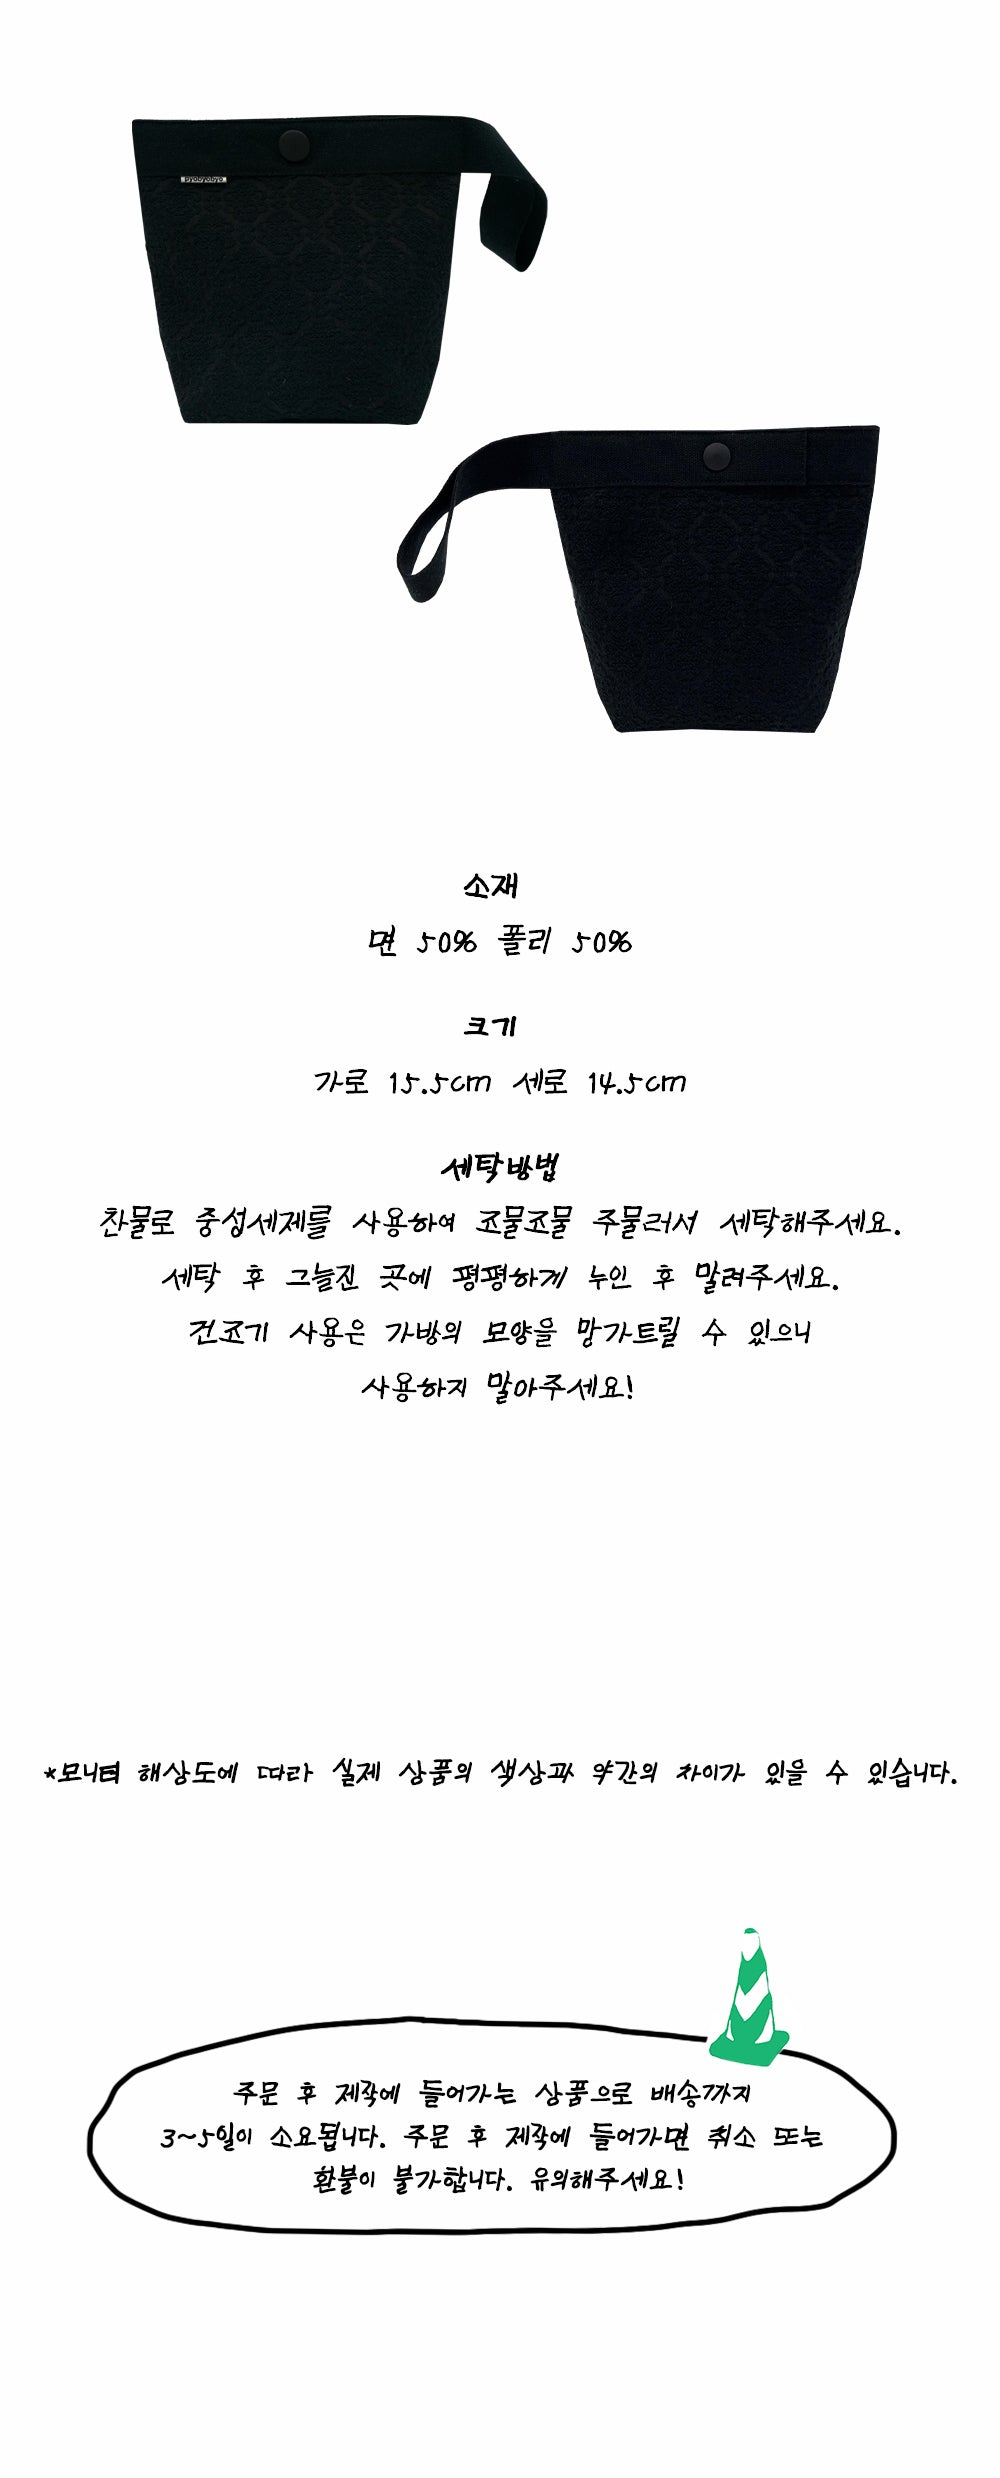 byobyobyo
소재
면 50% 폴리 50%
크기
가로 15.5cm 세로 14.5cm
세탁방법
찬물로 중성세제를 사용하여 조물조물 주물러서 세탁해주세요.
세탁 후 그늘진 곳에 평평하게 누인 후 말려주세요.
건조기 사용은 가방의 모양을 망가트릴 수 있으니
사용하지 말아주세요!
*모니터 해상도에 따라 실제 상품의 색상과 약간의 차이가 있을 수 있습니다.
주문 후 제작에 들어가는 상품으로 배송까지
3~5일이 소요됩니다. 주문 후 제작에 들어가면 취소 또는
환불이 불가합니다. 유의해주세요!